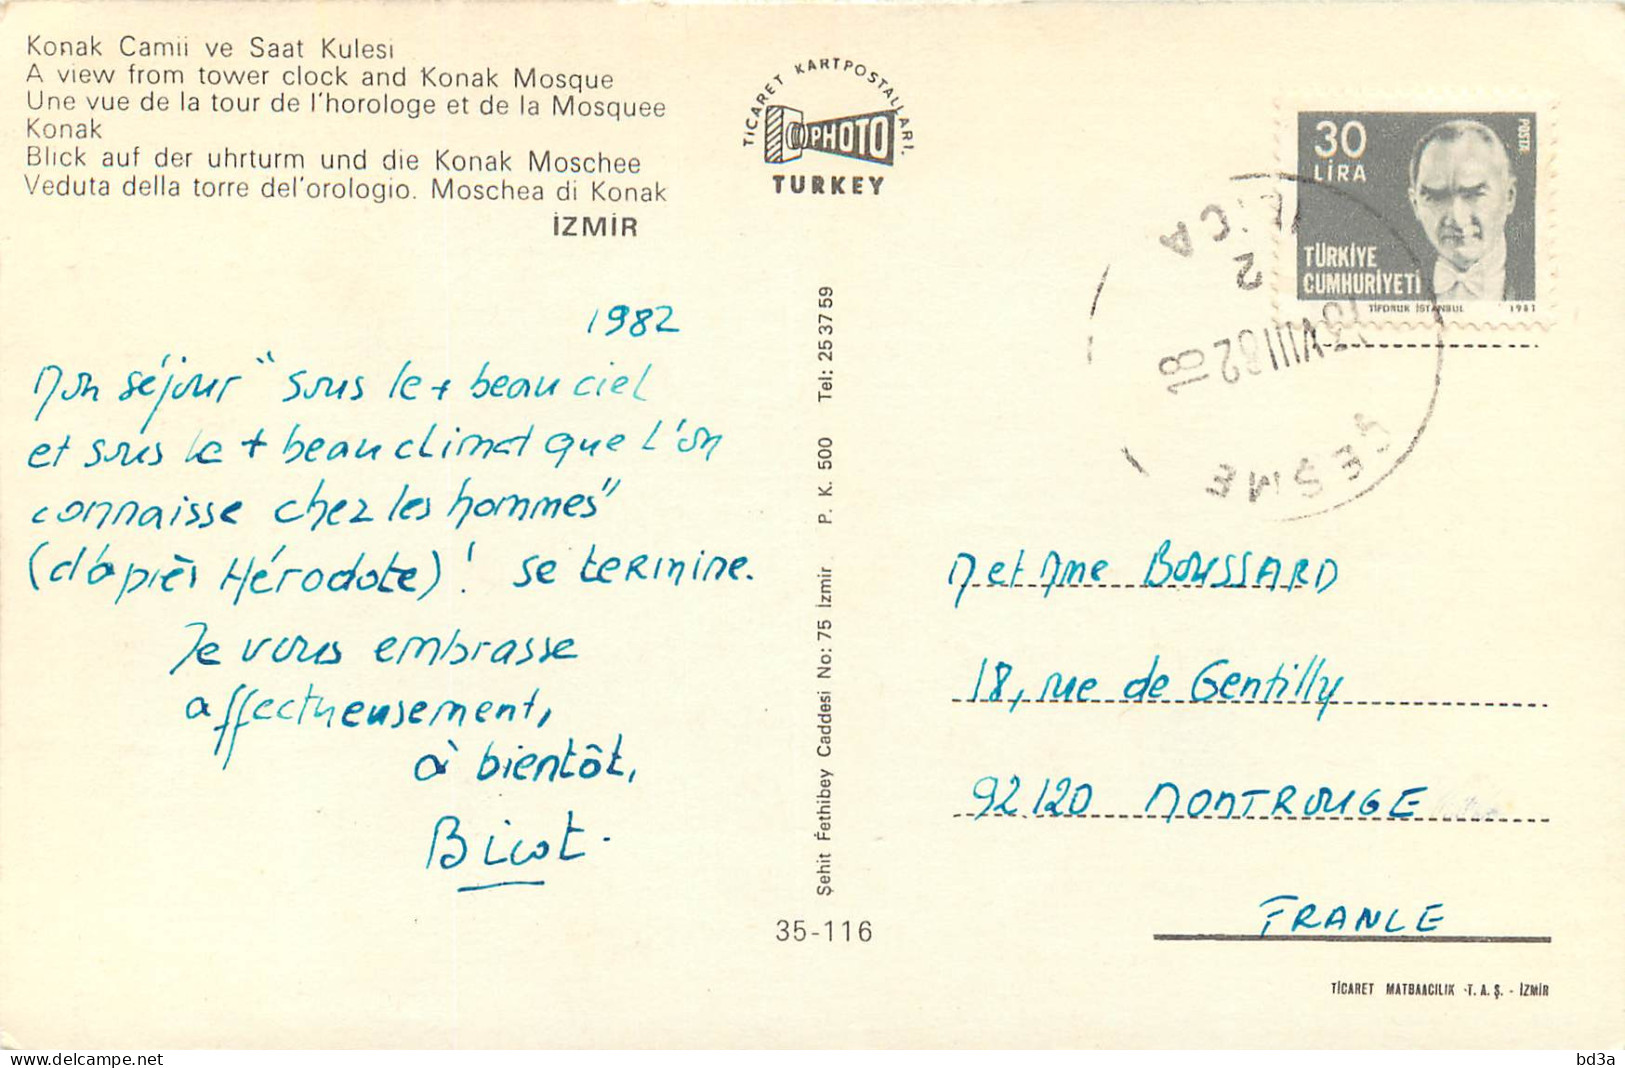 Konak Camii ve Saat Kulesi
A view from tower clock and Konak Mosque
Une vue de la tour de l'horologe et de la Mosquee
Konak
Blick auf der uhrturm und die Konak Moschee
Veduta della torre del'orologio. Moschea di Konak
İZMİR
TİCARET KARTPOSTALLARI.
PHOTO
TURKEY
30
LİRA
POSTA
TÜRKİYE
CUMHURİYETİ
TİFDRUK İSTANBUL 1981
ILICA
2
VIII 82-18
ÇEŞME
1982
Mon séjour "sous le + beau ciel
et sous le + beau climat que l'on
connaisse chez les hommes"
(d'après Hérodote)! se termine.
Je vous embrasse
affectueusement,
à bientôt,
Bicot.
Şehit Fethibey Caddesi No: 75 İzmir P. K. 500 Tel: 25 37 59
35-116
M et Mme BOUSSARD
18, rue de Gentilly
92120 MONTROUGE
FRANCE
TİCARET MATBAACILIK T. A. Ş. - İZMİR
delcampe.net
bd3a